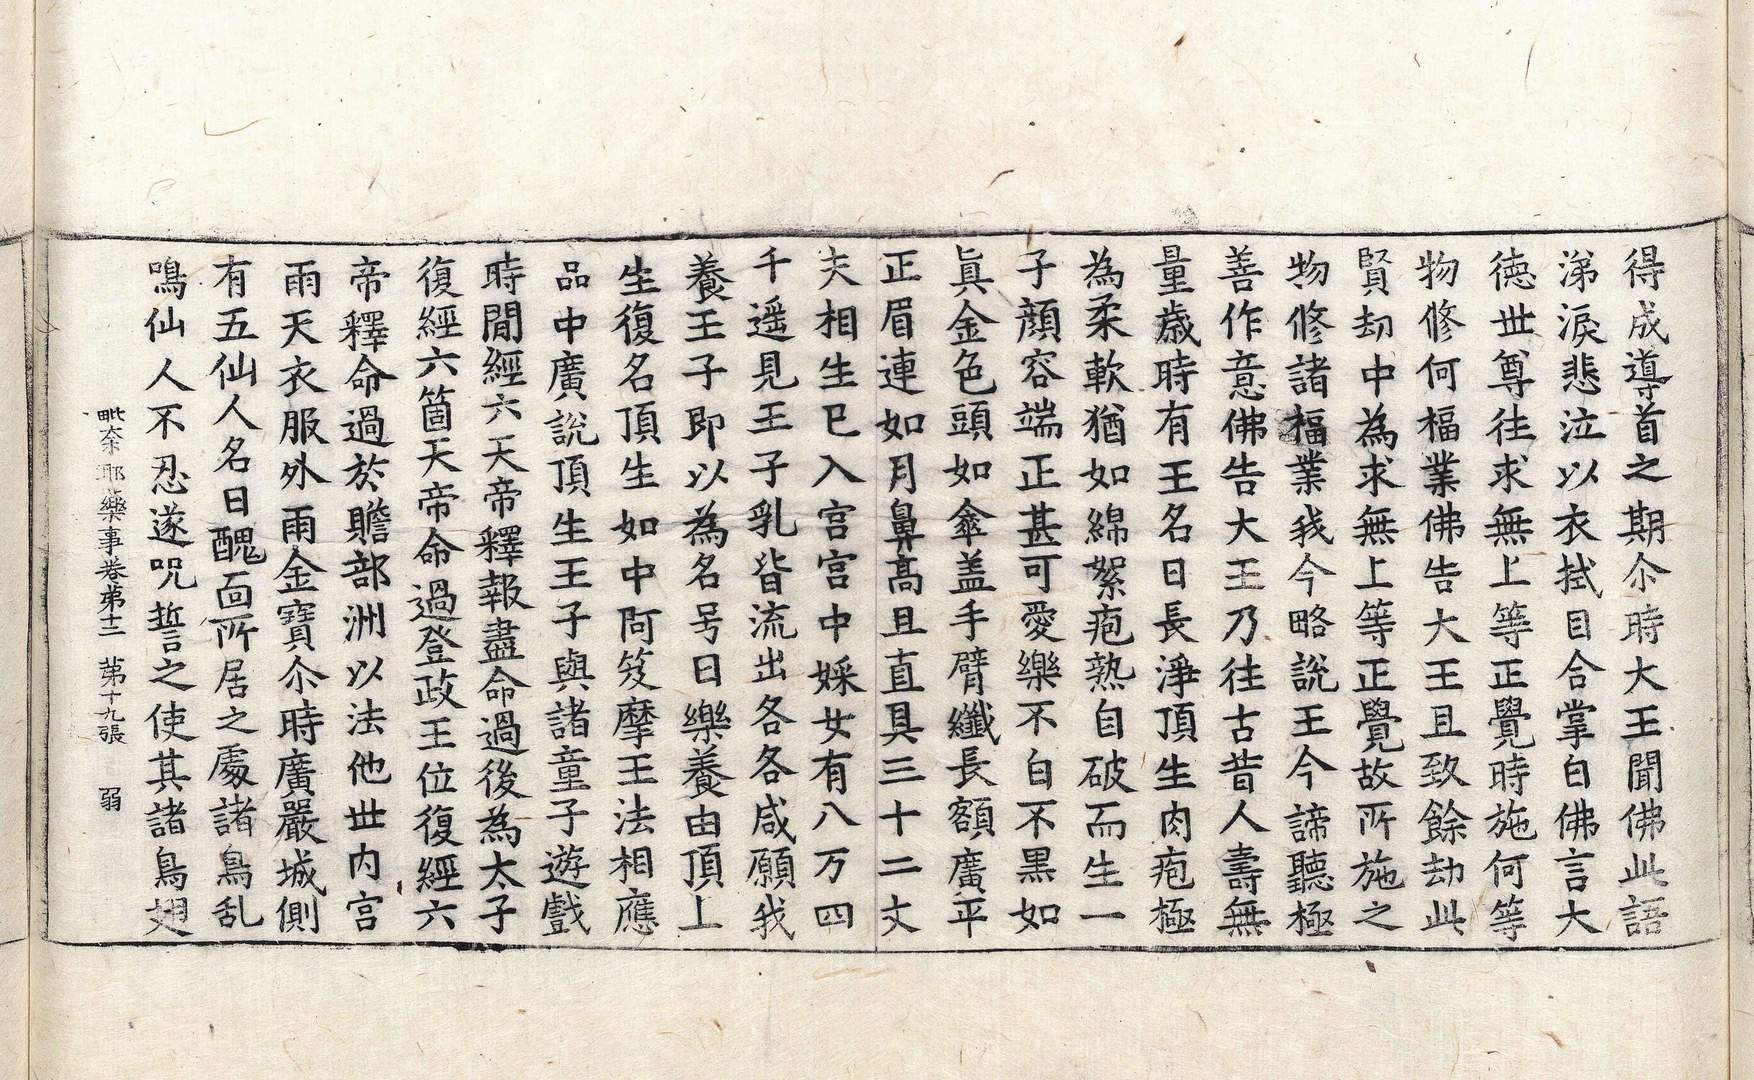 得成導首之期尒時大王聞佛此語
涕淚悲泣以衣拭目合掌白佛言大
德世尊往求無上等正覺時施何等
物修何福業佛告大王且致餘劫此
賢劫中為求無上等正覺故所施之
物修諸福業我今略說王今諦聽極
善作意佛告大王乃往古昔人壽無
量歲時有王名曰長淨頂生肉疱極
為柔軟猶如綿絮疱熟自破而生一
子顏容端正甚可愛樂不白不黑如
眞金色頭如傘盖手臂纖長額廣平
正眉連如月鼻高且直具三十二丈
夫相生已入宮宮中婇女有八万四
千遥見王子乳皆流出各各咸願我
養王子即以為名号曰樂養由頂上
生復名頂生如中阿笈摩王法相應
品中廣說頂生王子與諸童子遊戲
時間經六天帝釋報盡命過後為太子
復經六箇天帝命過登政王位復經六
帝釋命過於贍部洲以法他世内宮
雨天衣服外雨金寶尒時廣嚴城側
有五仙人名曰醜面所居之處諸鳥乱
鳴仙人不忍遂呪誓之使其諸鳥翅
毗奈耶藥事卷第十二 第十九張 弱